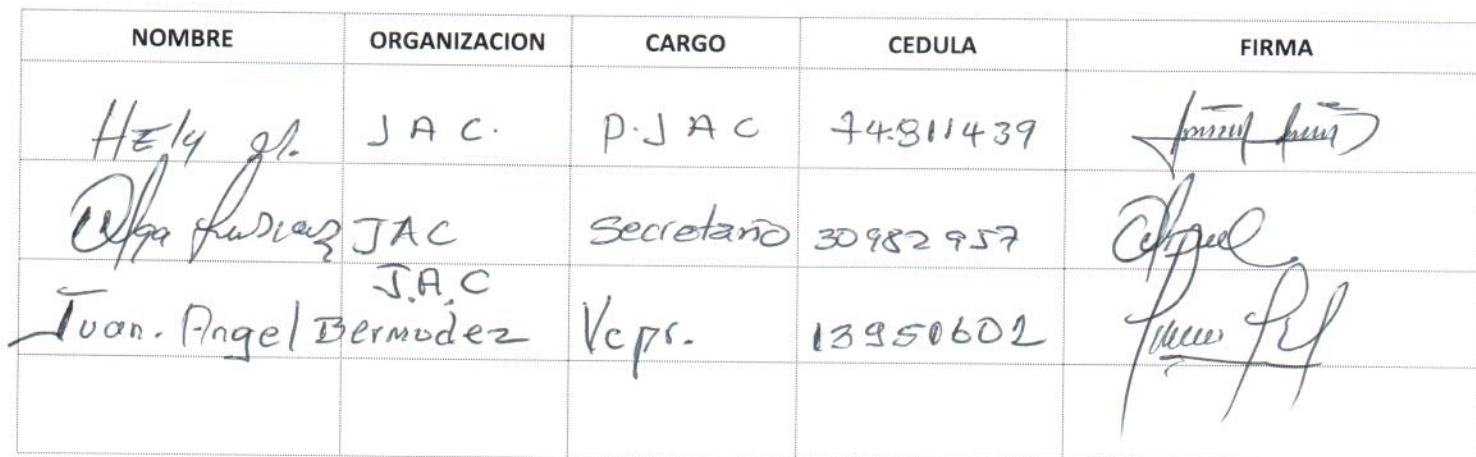 NOMBRE ORGANIZACION CARGO CEDULA FIRMA
HEly J A C. P. J A C 74.811439
Olga JAC Secretario 30982957
J.A.C
Juan. Angel Bermudez Vcpr. 13950602